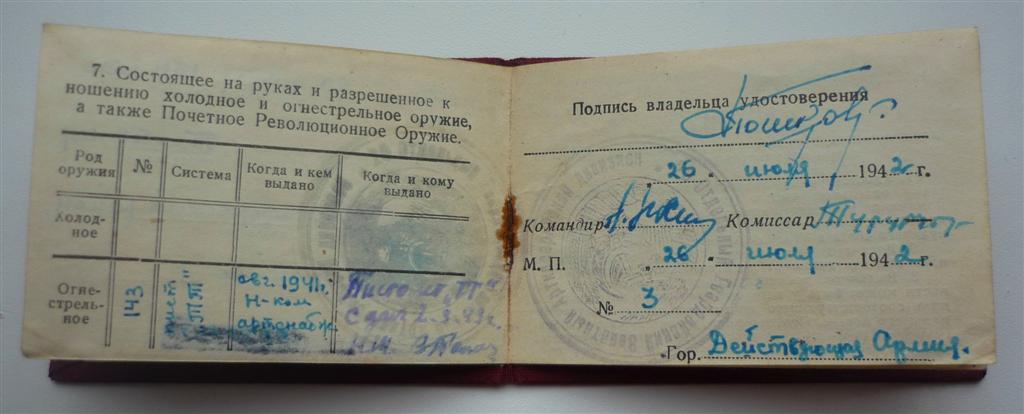 7. Состоящее на руках и разрешенное к
ношению холодное и огнестрельное оружие,
а также Почетное Революционное Оружие.
Род
оружия
№
Система
Когда и кем
выдано
Когда и кому
выдано
Холод-
ное
Огне-
стрель-
ное
143
пист
"ТТ"
авг. 1941г.
Н-ком
артснабж.
Пистолет "ТТ"
Сдал 2.3.43г.
Подпись владельца удостоверения
„ 26 " июля 1942г.
Командир Комиссар
М. П. „ 26 " июля 1942г.
№ 3
Гор. Действующая Армия.